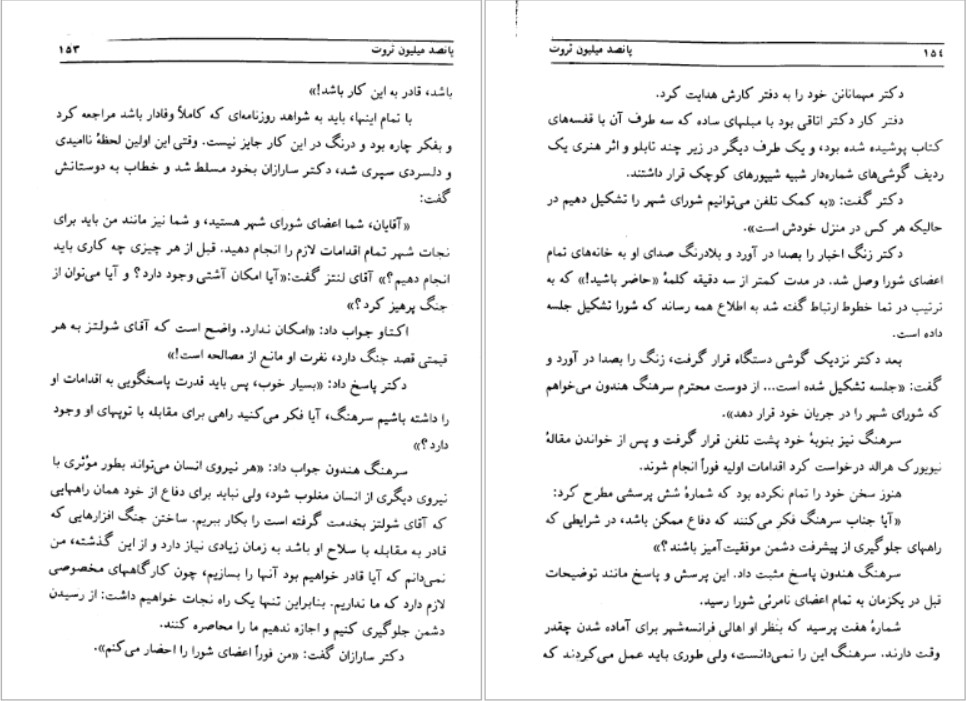 پانصد میلیون ثروت ۱۵۳
باشد، قادر به این کار باشد!»
با تمام اینها، باید به شواهد روزنامه‌ای که کاملاً وفادار باشد مراجعه کرد
و بفکر چاره بود و درنگ در این کار جایز نیست. وقتی این اولین لحظهٔ ناامیدی
و دلسردی سپری شد، دکتر سارازان بخود مسلط شد و خطاب به دوستانش
گفت:
«آقایان، شما اعضای شورای شهر هستید، و شما نیز مانند من باید برای
نجات شهر تمام اقدامات لازم را انجام دهید. قبل از هر چیزی چه کاری باید
انجام دهیم؟» آقای لنتز گفت:«آیا امکان آشتی وجود دارد؟ و آیا می‌توان از
جنگ پرهیز کرد؟»
اکتاو جواب داد: «امکان ندارد. واضح است که آقای شولتز به هر
قیمتی قصد جنگ دارد، نفرت او مانع از مصالحه است!»
دکتر پاسخ داد: «بسیار خوب، پس باید قدرت پاسخگویی به اقدامات او
را داشته باشیم سرهنگ، آیا فکر می‌کنید راهی برای مقابله با توپهای او وجود
دارد؟»
سرهنگ هندون جواب داد: «هر نیروی انسان می‌تواند بطور مؤثری با
نیروی دیگری از انسان مغلوب شود، ولی نباید برای دفاع از خود همان راههایی
که آقای شولتز بخدمت گرفته است را بکار ببریم. ساختن جنگ افزارهایی که
قادر به مقابله با سلاح او باشد به زمان زیادی نیاز دارد و از این گذشته، من
نمی‌دانم که آیا قادر خواهیم بود آنها را بسازیم، چون کارگاههای مخصوصی
لازم دارد که ما نداریم. بنابراین تنها یک راه نجات خواهیم داشت: از رسیدن
دشمن جلوگیری کنیم و اجازه ندهیم ما را محاصره کنند.
دکتر سارازان گفت: «من فوراً اعضای شورا را احضار می‌کنم».
۱۵۴ پانصد میلیون ثروت
دکتر مهمانانن خود را به دفتر کارش هدایت کرد.
دفتر کار دکتر اتاقی بود با مبلهای ساده که سه طرف آن با قفسه‌های
کتاب پوشیده شده بود، و یک طرف دیگر در زیر چند تابلو و اثر هنری یک
ردیف گوشی‌های شماره‌دار شبیه شیپورهای کوچک قرار داشتند.
دکتر گفت: «به کمک تلفن می‌توانیم شورای شهر را تشکیل دهیم در
حالیکه هر کس در منزل خودش است».
دکتر زنگ اخبار را بصدا در آورد و بلادرنگ صدای او به خانه‌های تمام
اعضای شورا وصل شد. در مدت کمتر از سه دقیقه کلمهٔ «حاضر باشید!» که به
ترتیب در تما خطوط ارتباط گفته شد به اطلاع همه رساند که شورا تشکیل جلسه
داده است.
بعد دکتر نزدیک گوشی دستگاه قرار گرفت، زنگ را بصدا در آورد و
گفت: «جلسه تشکیل شده است... از دوست محترم سرهنگ هندون می‌خواهم
که شورای شهر را در جریان خود قرار دهد».
سرهنگ نیز بنوبهٔ خود پشت تلفن قرار گرفت و پس از خواندن مقالهٔ
نیویورک هرالد درخواست کرد اقدامات اولیه فوراً انجام شوند.
هنوز سخن خود را تمام نکرده بود که شمارهٔ شش پرسشی مطرح کرد:
«آیا جناب سرهنگ فکر می‌کنند که دفاع ممکن باشد، در شرایطی که
راههای جلوگیری از پیشرفت دشمن موفقیت‌آمیز باشند؟»
سرهنگ هندون پاسخ مثبت داد. این پرسش و پاسخ مانند توضیحات
قبل در یکزمان به تمام اعضای نامرئی شورا رسید.
شمارهٔ هفت پرسید که بنظر او اهالی فرانسه‌شهر برای آماده شدن چقدر
وقت دارند. سرهنگ این را نمی‌دانست، ولی طوری باید عمل می‌کردند که